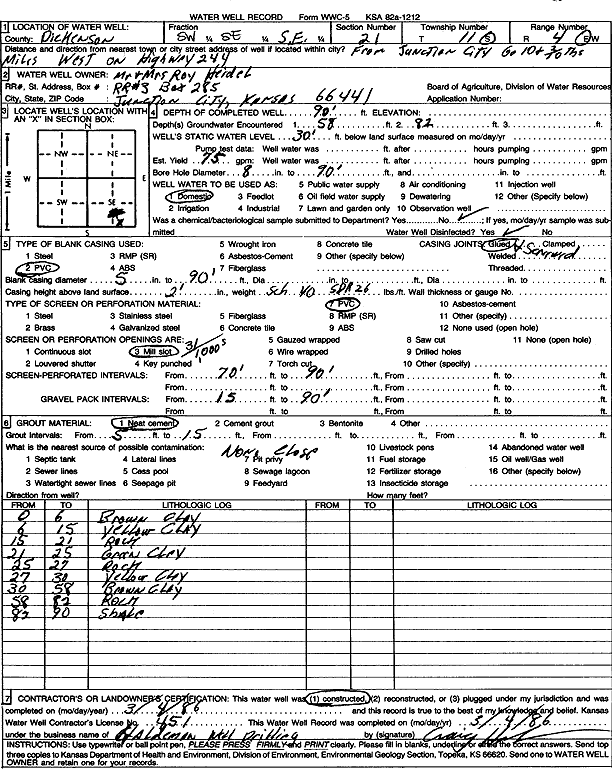 WATER WELL RECORD Form WWC-5 KSA 82a-1212
1 LOCATION OF WATER WELL: Fraction Section Number Township Number Range Number
County: Dickenson SW ¼ SE ¼ S.E. ¼ 21 T 11 S R 4 E/W
Distance and direction from nearest town or city street address of well if located within city? From Junction City Go 10 + 3/10 ths
Miles West on Highway 244
2 WATER WELL OWNER: Mr + Mrs Roy Heidel
RR#, St. Address, Box # : RR#3 Box 285 Board of Agriculture, Division of Water Resources
City, State, ZIP Code : Junction City, Kansas 66441 Application Number:
3 LOCATE WELL'S LOCATION WITH AN "X" IN SECTION BOX:
N
NW NE
W E
SW SE
S
1 Mile
4 DEPTH OF COMPLETED WELL 90' ft. ELEVATION:
Depth(s) Groundwater Encountered 1. 58 ft. 2. 82 ft. 3. ft.
WELL'S STATIC WATER LEVEL 30' ft. below land surface measured on mo/day/yr
Pump test data: Well water was ft. after hours pumping gpm
Est. Yield 75 gpm: Well water was ft. after hours pumping gpm
Bore Hole Diameter 8 in. to 90' ft., and in. to ft.
WELL WATER TO BE USED AS: 5 Public water supply 8 Air conditioning 11 Injection well
1 Domestic 3 Feedlot 6 Oil field water supply 9 Dewatering 12 Other (Specify below)
2 Irrigation 4 Industrial 7 Lawn and garden only 10 Observation well
Was a chemical/bacteriological sample submitted to Department? Yes No ✓; If yes, mo/day/yr sample was sub-
mitted Water Well Disinfected? Yes ✓ No
5 TYPE OF BLANK CASING USED: 5 Wrought iron 8 Concrete tile CASING JOINTS: Glued ✓ Clamped
1 Steel 3 RMP (SR) 6 Asbestos-Cement 9 Other (specify below) Welded
2 PVC 4 ABS 7 Fiberglass Threaded
Blank casing diameter 5 in. to 90' ft., Dia in. to ft., Dia in. to ft.
Casing height above land surface 2' in., weight Sch. 40 SDR 26 lbs./ft. Wall thickness or gauge No.
TYPE OF SCREEN OR PERFORATION MATERIAL: 7 PVC 10 Asbestos-cement
1 Steel 3 Stainless steel 5 Fiberglass 8 RMP (SR) 11 Other (specify)
2 Brass 4 Galvanized steel 6 Concrete tile 9 ABS 12 None used (open hole)
SCREEN OR PERFORATION OPENINGS ARE: 3/1000's 5 Gauzed wrapped 8 Saw cut 11 None (open hole)
1 Continuous slot 3 Mill slot 6 Wire wrapped 9 Drilled holes
2 Louvered shutter 4 Key punched 7 Torch cut 10 Other (specify)
SCREEN-PERFORATED INTERVALS: From 70' ft. to 90' ft., From ft. to ft.
From ft. to ft., From ft. to ft.
GRAVEL PACK INTERVALS: From 15 ft. to 90' ft., From ft. to ft.
From ft. to ft., From ft. to ft.
6 GROUT MATERIAL: 1 Neat cement 2 Cement grout 3 Bentonite 4 Other
Grout Intervals: From 5 ft. to 15 ft., From ft. to ft., From ft. to ft.
What is the nearest source of possible contamination: None Close 10 Livestock pens 14 Abandoned water well
1 Septic tank 4 Lateral lines 7 Pit privy 11 Fuel storage 15 Oil well/Gas well
2 Sewer lines 5 Cess pool 8 Sewage lagoon 12 Fertilizer storage 16 Other (specify below)
3 Watertight sewer lines 6 Seepage pit 9 Feedyard 13 Insecticide storage
Direction from well? How many feet?
FROM TO LITHOLOGIC LOG FROM TO LITHOLOGIC LOG
0 6 Brown Clay
6 15 Yellow Clay
15 21 Rock
21 25 Green Clay
25 27 Rock
27 30 Yellow Clay
30 58 Brown Clay
58 82 Rock
82 90 Shale
7 CONTRACTOR'S OR LANDOWNER'S CERTIFICATION: This water well was (1) constructed, (2) reconstructed, or (3) plugged under my jurisdiction and was
completed on (mo/day/year) 3/4/86 and this record is true to the best of my knowledge and belief. Kansas
Water Well Contractor's License No. 451 This Water Well Record was completed on (mo/day/yr) 3/4/86
under the business name of Haldeman Well Drilling by (signature) Craig
INSTRUCTIONS: Use typewriter or ball point pen, PLEASE PRESS FIRMLY and PRINT clearly. Please fill in blanks, underline or circle the correct answers. Send top
three copies to Kansas Department of Health and Environment, Division of Environment, Environmental Geology Section, Topeka, KS 66620. Send one to WATER WELL
OWNER and retain one for your records.